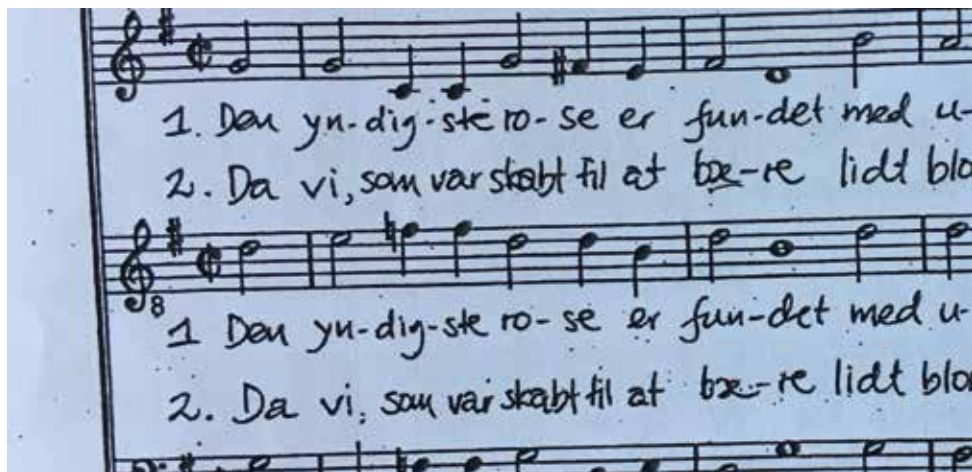 1. Den yn-dig-ste ro-se er fun-det med u-
2. Da vi, som var skabt til at bæ-re lidt blo
8
1 Den yn-dig-ste ro-se er fun-det med u-
2. Da vi, som var skabt til at bæ-re lidt blo